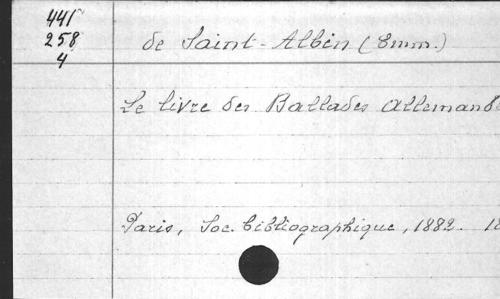 441
258
4
de Saint-Albin (Emm.)
Le livre des Ballades allemandes
Paris, Soc. bibliographique, 1882. 18